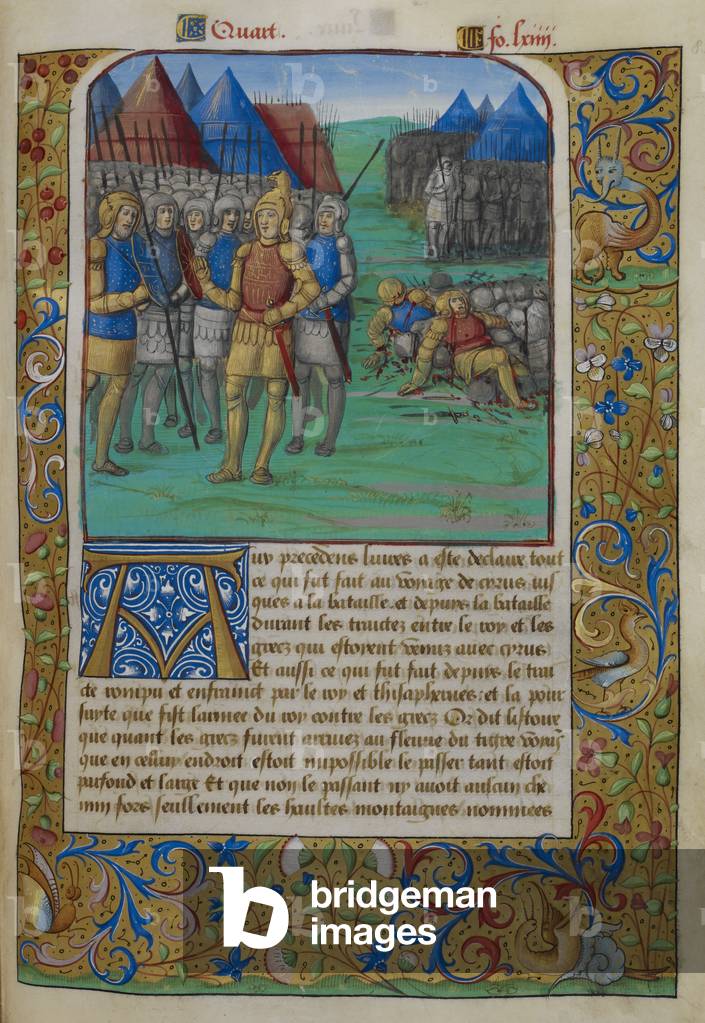 Quart. fo. lxiiii.
Auy precedens livres a este declaire tout
ce qui fut fait au voyage de cyrus jus
ques a la bataille et depuys la bataille
durant les traictez entre le roy et les
grecz qui estoyent venuz avec cyrus
Et aussi ce qui fut fait depuys le trai
cte rompu et enfrainct par le roy et thisaphernes et la pour
suyte que fist larmee du roy contre les grecz Or dit listoire
que quant les grecz furent arrivez au fleuve du tigre
que en celluy endroit estoit impossible le passer tant estoit
parfond et large Et que non le passant ny avoit aulcun che
min fors seullement les haultes montaignes nommees
b bridgeman
images